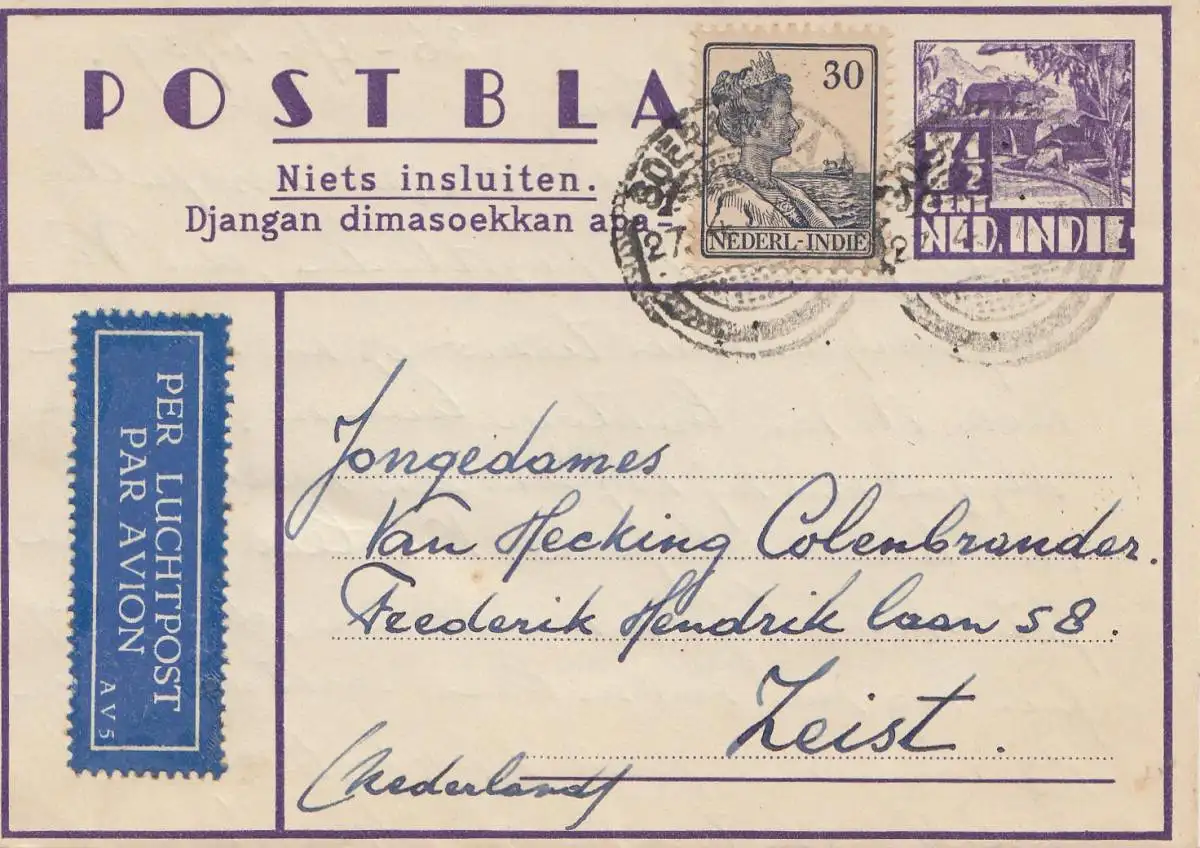 POST BLA
Niets insluiten.
Djangan dimasoekkan apa-
30
NEDERL-INDIE
7½
CENT
NED. INDIE
SOER
27
27 4
PER LUCHTPOST
PAR AVION
AV5
Jongedames
Van Hecking Colenbrander.
Frederik Hendrik laan 58.
Zeist.
(Nederland)